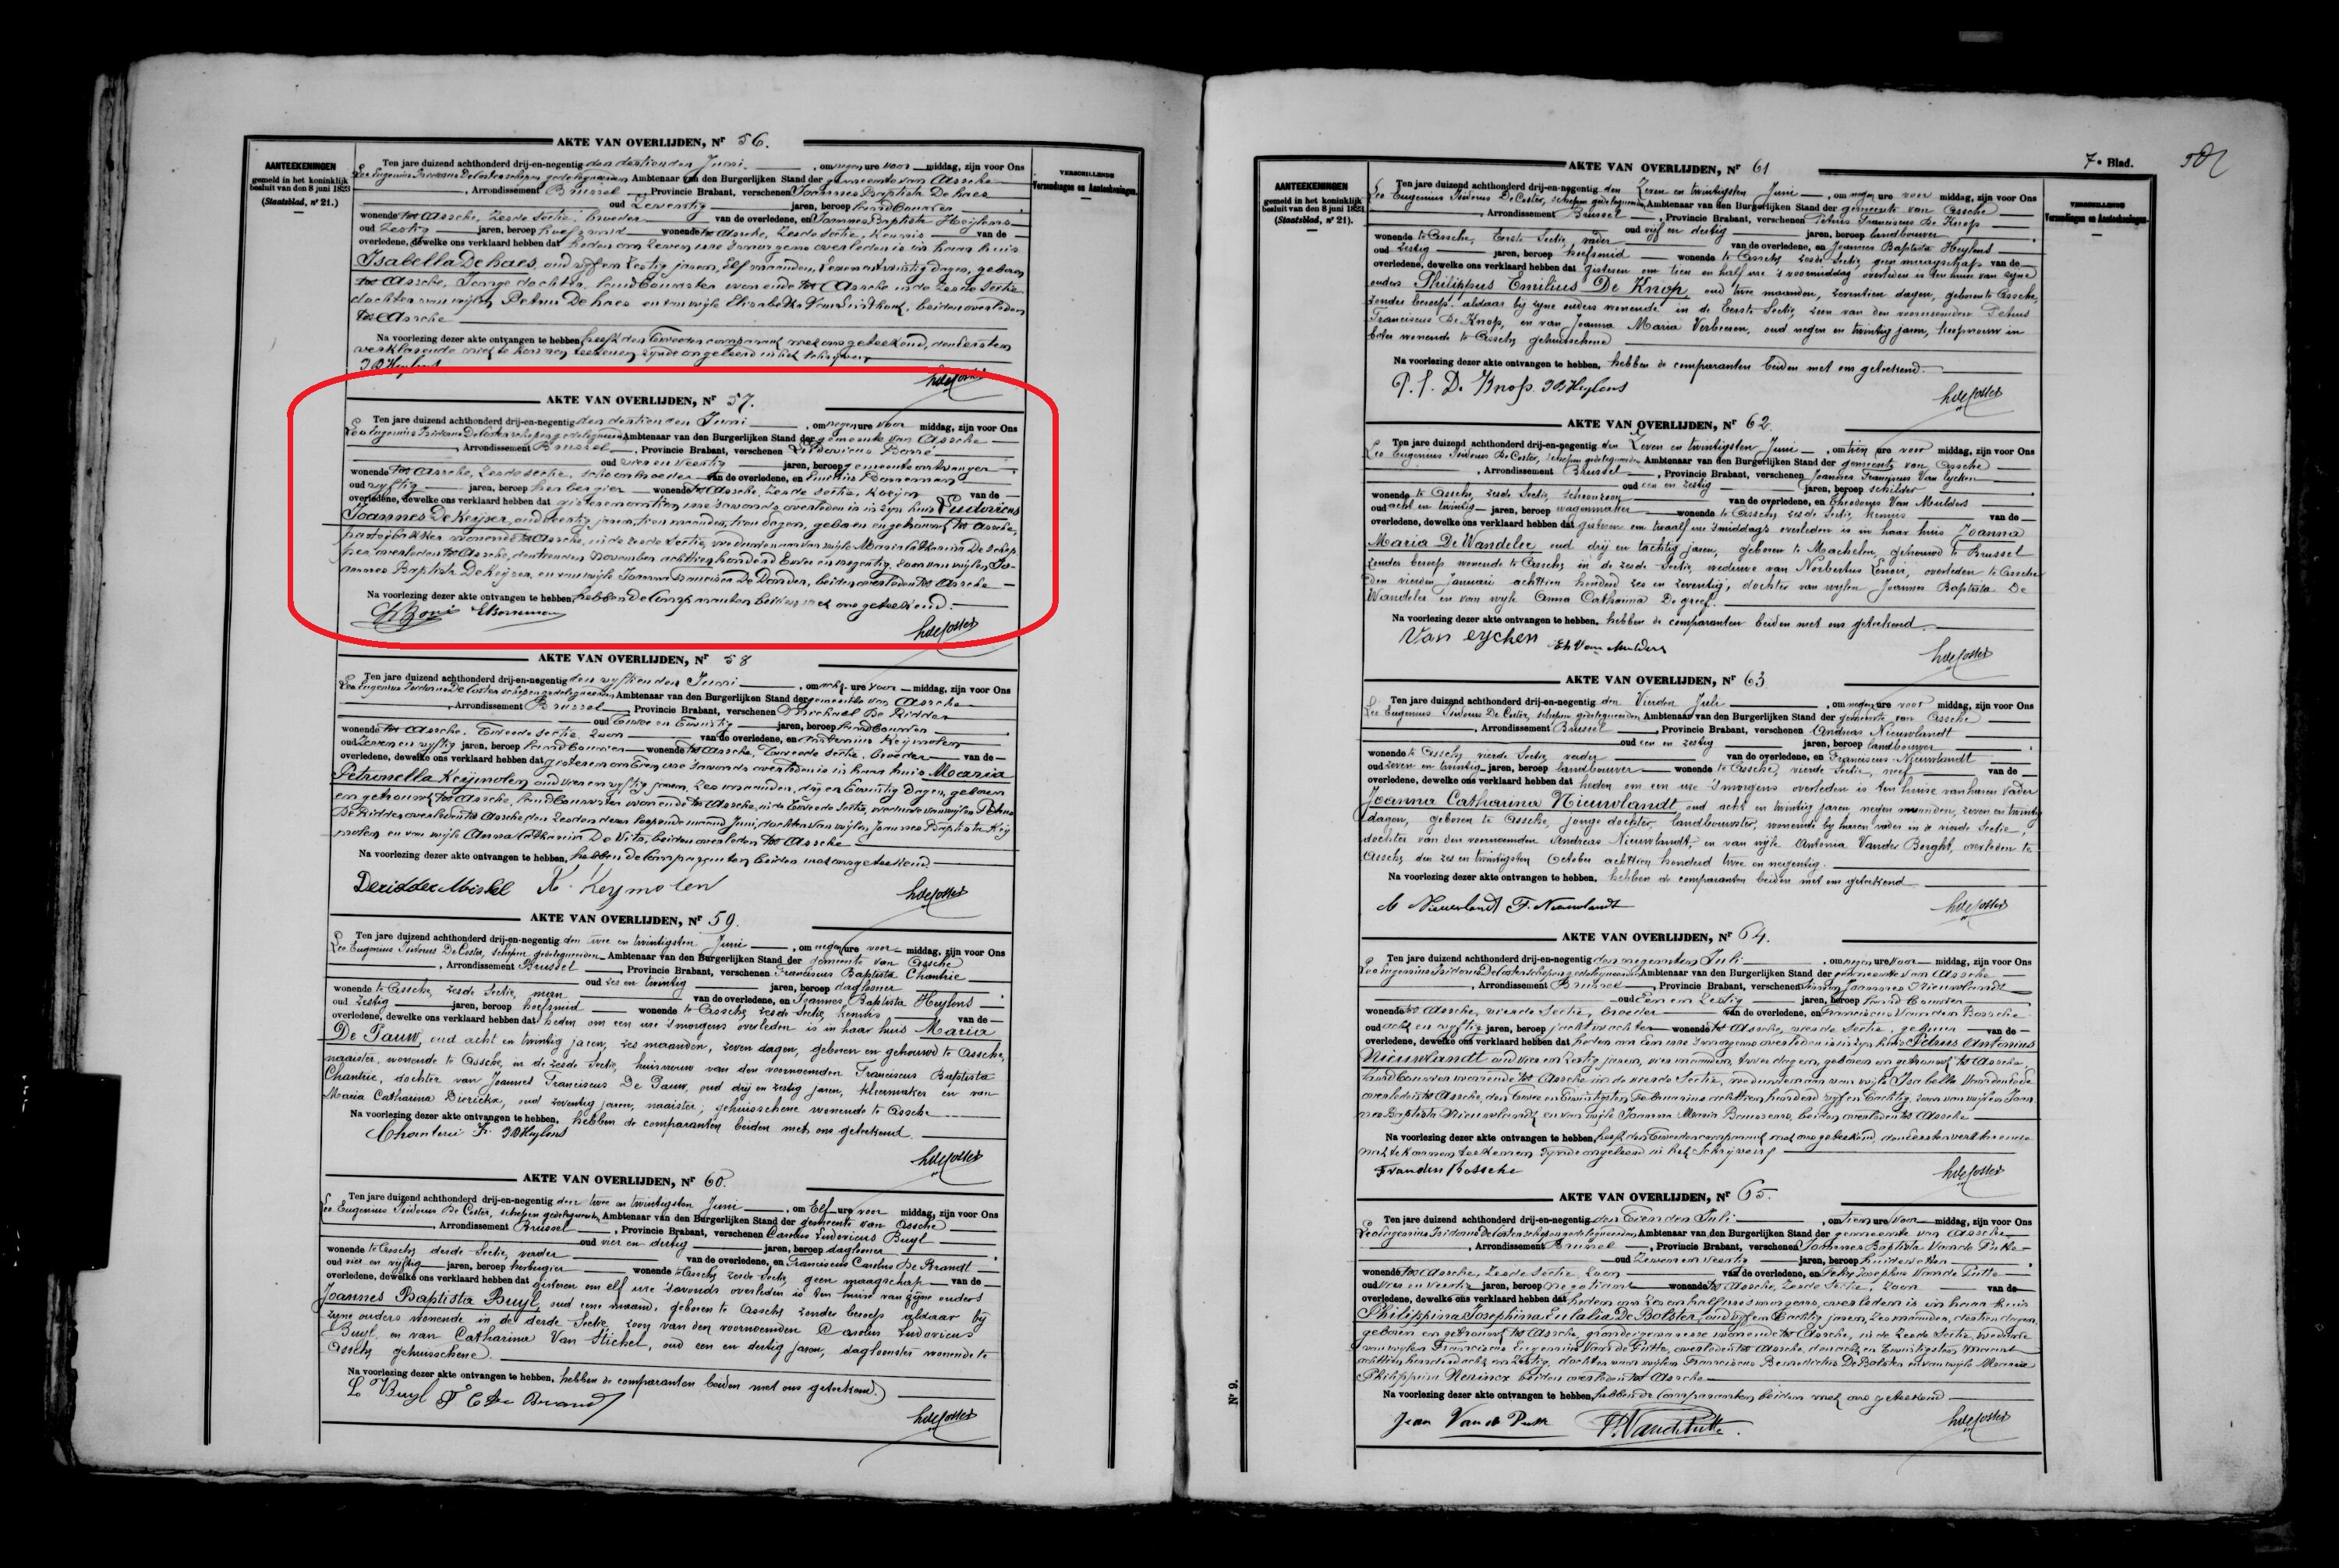 AKTE VAN OVERLIJDEN, Nr 56.
AANTEEKENINGEN
gemeld in het koninklijk
besluit van den 8 juni 1823
(Staatsblad, nr 21.)
VERSCHILLENDE
Verzendingen en Aanteekeningen.
Ten jare duizend achthonderd drij-en-negentig den dertienden Juni, om negen ure voor middag, zijn voor Ons
Leo Eugenius Isidorus De Coster schepen gedelegueerden Ambtenaar van den Burgerlijken Stand der gemeente van Assche
Arrondissement Brussel, Provincie Brabant, verschenen Joannes Baptista De haes
oud Zeventig jaren, beroep landbouwer
wonende tot Assche, Zesde Sectie, broeder van de overledene, en Joannes Baptista Heijlens
oud Zestig jaren, beroep hoefsmid wonende tot Assche, Zesde Sectie, Kennis van de
overledene, dewelke ons verklaard hebben dat heden om zeven ure 's morgens overleden is in haar huis
Isabella De haes, oud vijf en Zestig jaren, Elf maanden, Zeven en twintig dagen, geboren
tot Assche, Jonge dochter, landbouwster wonende tot Assche in de zesde Sectie
dochter van wijlen Petrus De haes en van wijle Elisabetha, beiden overleden
tot Assche
Na voorlezing dezer akte ontvangen te hebben, heeft den Tweeden comparant met ons geteekend, den eersten
verklarende niet te kunnen teekenen zijnde ongeleerd in het schrijven
J B Heylens
AKTE VAN OVERLIJDEN, Nr 57.
Ten jare duizend achthonderd drij-en-negentig den dertienden Juni, om negen ure voor middag, zijn voor Ons
Leo Eugenius Isidorus De Coster schepen gedelegueerden Ambtenaar van den Burgerlijken Stand der gemeente van Assche
Arrondissement Brussel, Provincie Brabant, verschenen Ludovicus Borré
oud vier en veertig jaren, beroep gemeente ontvanger
wonende tot Assche, Zesde Sectie, schoonbroeder van de overledene, en Emilius Borreman
oud vijftig jaren, beroep herbergier wonende tot Assche, Zesde Sectie, Kozijn van de
overledene, dewelke ons verklaard hebben dat gisteren om tien ure 's avonds overleden is in zijn huis Ludovicus
Joannes De Keijser, oud veertig jaren, tien maanden, dagen, geboren en gehuwd tot Assche,
pasteijbakker wonende tot Assche, in de zesde Sectie, weduwenaar van wijle Maria Catharina De Schep
per, overleden tot Assche, den November achttien honderd Twee en negentig, zoon van wijlen Jo
annes Baptista De Keijser, en van wijle Joanna Francisca De Donder, beiden overleden tot Assche
Na voorlezing dezer akte ontvangen te hebben, hebben de Comparanten beiden met ons geteekend.
AKTE VAN OVERLIJDEN, Nr 58
Ten jare duizend achthonderd drij-en-negentig den vijftienden Juni, om acht ure voor middag, zijn voor Ons
Leo Eugenius Isidorus De Coster schepen gedelegueerden Ambtenaar van den Burgerlijken Stand der gemeente van Assche
Arrondissement Brussel, Provincie Brabant, verschenen Michael De Ridder
oud Twee en Twintig jaren, beroep landbouwer
wonende tot Assche, Tweede Sectie, Zoon van de overledene, en Keijmolen
oud Zeven en vijftig jaren, beroep landbouwer wonende tot Assche, Tweede Sectie, broeder van de
overledene, dewelke ons verklaard hebben dat gisteren om Tien ure 's avonds overleden is in haar huis Maria
Petronella Keijmolen oud vier en vijftig jaren, Zes maanden, drij en Twintig dagen, geboren
en gehuwd tot Assche, landbouwster wonende tot Assche, in de Tweede Sectie, weduwe van wijlen Petrus
De Ridder overleden tot Assche den zesden dezer loopende maand Juni, dochter van wijlen Joannes Baptista Keij
molen en van wijle Anna Catharina De Vits, beiden overleden tot Assche
Na voorlezing dezer akte ontvangen te hebben, hebben de Comparanten beiden met ons geteekend
Deridder Michel K. Keymolen
AKTE VAN OVERLIJDEN, Nr 59.
Ten jare duizend achthonderd drij-en-negentig den twee en twintigsten Juni, om negen ure voor middag, zijn voor Ons
Leo Eugenius Isidorus De Coster, schepen gedelegueerden Ambtenaar van den Burgerlijken Stand der gemeente van Assche
Arrondissement Brussel, Provincie Brabant, verschenen Franciscus Baptista Chantrie
oud zes en twintig jaren, beroep daglooner
wonende te Assche, zesde Sectie, man van de overledene, en Joannes Baptista Heylens
oud zestig jaren, beroep hoefsmid wonende te Assche, zesde Sectie, kennis van de
overledene, dewelke ons verklaard hebben dat heden om een ure 's morgens overleden is in haar huis Maria
De Pauw, oud acht en twintig jaren, zes maanden, zeven dagen, geboren en gehuwd te Assche,
naaister, wonende te Assche, in de zesde Sectie, huisvrouw van den voornoemden Franciscus Baptista
Chantrie, dochter van Joannes Franciscus De Pauw, oud drij en zestig jaren, kleermaker en van
Maria Catharina Dierickx, oud zeventig jaren, naaister; gehuisschene wonende te Assche
Na voorlezing dezer akte ontvangen te hebben, hebben de comparanten beiden met ons geteekend.
Chanterie Fr. J B Heylens
AKTE VAN OVERLIJDEN, Nr 60.
Ten jare duizend achthonderd drij-en-negentig den twee en twintigsten Juni, om Elf ure voor middag, zijn voor Ons
Leo Eugenius Isidorus De Coster, schepen gedelegueerden Ambtenaar van den Burgerlijken Stand der gemeente van Assche
Arrondissement Brussel, Provincie Brabant, verschenen Carolus Ludovicus Buyl
oud vier en dertig jaren, beroep daglooner
wonende te Assche, derde Sectie, vader van de overledene, en Franciscus Carolus De Brandt
oud vier en vijftig jaren, beroep herbergier wonende te Assche, zesde Sectie, geen maagschap van de
overledene, dewelke ons verklaard hebben dat gisteren om elf ure 's avonds overleden is ten huize van zijne ouders
Joannes Baptista Buyl, oud eene maand, geboren te Assche, zonder beroep aldaar bij
zijne ouders wonende in de derde Sectie, zoon van den voornoemden Carolus Ludovicus
Buyl, en van Catharina Van Stichel, oud een en dertig jaren, dagloonster wonende te
Assche gehuisschene.
Na voorlezing dezer akte ontvangen te hebben, hebben de comparanten beiden met ons geteekend
L. Buyl
7e Blad.
AKTE VAN OVERLIJDEN, Nr 61
AANTEEKENINGEN
gemeld in het koninklijk
besluit van den 8 juni 1823
(Staatsblad, nr 21).
VERSCHILLENDE
Verzendingen en Aanteekeningen.
Ten jare duizend achthonderd drij-en-negentig den Zeven en twintigsten Juni, om negen ure voor middag, zijn voor Ons
Leo Eugenius Isidorus De Coster, schepen gedelegueerden Ambtenaar van den Burgerlijken Stand der gemeente van Assche
Arrondissement Brussel, Provincie Brabant, verschenen Petrus Franciscus De Knop
oud vijf en dertig jaren, beroep landbouwer
wonende te Assche, Eerste Sectie, vader van de overledene, en Joannes Baptista Heylens
oud zestig jaren, beroep hoefsmid wonende te Assche, zesde Sectie, geen maagschap van de
overledene, dewelke ons verklaard hebben dat gisteren om tien en half ure 's voormiddag overleden is ten huize van zijne
ouders Philippus Emilius De Knop, oud twee maanden, zeventien dagen, geboren te Assche,
zonder beroep, aldaar bij zijne ouders wonende in de Eerste Sectie, zoon van den voornoemden Petrus
Franciscus De Knop, en van Joanna Maria Verbeeren, oud negen en twintig jaren, in
wonende te Assche, gehuisschene
Na voorlezing dezer akte ontvangen te hebben, hebben de comparanten beiden met ons geteekend.
P. f. D. Knop. J B Heylens
AKTE VAN OVERLIJDEN, Nr 62.
Ten jare duizend achthonderd drij-en-negentig den Zeven en twintigsten Juni, om tien ure voor middag, zijn voor Ons
Leo Eugenius Isidorus De Coster, schepen gedelegueerden Ambtenaar van den Burgerlijken Stand der gemeente van Assche
Arrondissement Brussel, Provincie Brabant, verschenen Joannes Franciscus Van Eycken
oud een en zestig jaren, beroep schilder
wonende te Assche, zesde Sectie, schoonzoon van de overledene, en Theodorus Van Mulders
oud acht en twintig jaren, beroep wagenmaker wonende te Assche, zesde Sectie, kennis van de
overledene, dewelke ons verklaard hebben dat gisteren om twaalf ure 's middags overleden is in haar huis Joanna
Maria De Wandeler oud drij en tachtig jaren, geboren te Machelen, gehuwd te Brussel
zonder beroep wonende te Assche, in de zesde Sectie, weduwe van Norbertus Lenoir, overleden te Assche
den vierden Januari achttien honderd zes en zeventig; dochter van wijlen Joannes Baptista De
Wandeler en van wijle Anna Catharina De greef.
Na voorlezing dezer akte ontvangen te hebben, hebben de comparanten beiden met ons geteekend.
Van eychen Th Van Mulders
AKTE VAN OVERLIJDEN, Nr 63
Ten jare duizend achthonderd drij-en-negentig den Vierden Juli, om negen ure voor middag, zijn voor Ons
Leo Eugenius Isidorus De Coster, schepen gedelegueerden Ambtenaar van den Burgerlijken Stand der gemeente van Assche
Arrondissement Brussel, Provincie Brabant, verschenen Andreas Nieuwlandt
oud een en zestig jaren, beroep landbouwer
wonende te Assche, vierde Sectie, vader van de overledene, en Franciscus Nieuwlandt
oud zeven en twintig jaren, beroep landbouwer wonende te Assche, vierde Sectie, neef van de
overledene, dewelke ons verklaard hebben dat heden om een ure 's morgens overleden is ten huize van haren vader
Joanna Catharina Nieuwlandt oud acht en twintig jaren negen maanden, zeven en twintig
dagen, geboren te Assche, jonge dochter, landbouwster, wonende bij haren vader in de vierde Sectie,
dochter van den voornoemden Andreas Nieuwlandt, en van wijle Antonia Vander Borght, overleden te
Assche, den zes en twintigsten October achttien honderd twee en negentig.
Na voorlezing dezer akte ontvangen te hebben, hebben de comparanten beiden met ons geteekend
A Nieuwlandt F. Nieuwlandt
AKTE VAN OVERLIJDEN, Nr 64.
Ten jare duizend achthonderd drij-en-negentig den negenden Juli, om negen ure voor middag, zijn voor Ons
Leo Eugenius Isidorus De Coster schepen gedelegueerden Ambtenaar van den Burgerlijken Stand der gemeente van Assche
Arrondissement Brussel, Provincie Brabant, verschenen Joannes Nieuwlandt
oud Een en Zestig jaren, beroep landbouwer
wonende tot Assche, vierde Sectie, broeder van de overledene, en Franciscus Van den Bossche
oud acht en vijftig jaren, beroep jachtwachter wonende tot Assche, vierde Sectie, gebuur van de
overledene, dewelke ons verklaard hebben dat heden om Een ure 's morgens overleden is in zijn huis Petrus Antonius
Nieuwlandt oud vier en Zestig jaren, vier maanden, twee dagen, geboren en gehuwd tot Assche,
landbouwer wonende tot Assche in de vierde Sectie, weduwenaar van wijle Isabella
overleden tot Assche, den Twee en Twintigsten Februarius achttien honderd vijf en Tachtig, zoon van wijlen Joan
nes Baptista Nieuwlandt en van wijle Joanna Maria, beiden overleden tot Assche
Na voorlezing dezer akte ontvangen te hebben, heeft den tweeden comparant met ons geteekend, den eersten verklarende
niet te kunnen teekenen zijnde ongeleerd in het schrijven
F vanden Bossche
AKTE VAN OVERLIJDEN, Nr 65.
Ten jare duizend achthonderd drij-en-negentig den Tienden Juli, om tien ure voor middag, zijn voor Ons
Leo Eugenius Isidorus De Coster schepen gedelegueerden Ambtenaar van den Burgerlijken Stand der gemeente van Assche
Arrondissement Brussel, Provincie Brabant, verschenen Joannes Baptista Van de Putte
oud Zeven en veertig jaren, beroep huidevetter
wonende tot Assche, Zesde Sectie, Zoon van de overledene, en Felix Josephus Van de Putte
oud vier en veertig jaren, beroep negotiant wonende tot Assche, Zesde Sectie, Zoon van de
overledene, dewelke ons verklaard hebben dat heden om Zes en half ure 's morgens, overleden is in haar huis
Philippina Josephina Eulalia De Bolster, oud vijf en Tachtig jaren, Zes maanden, dertien dagen,
geboren en gehuwd tot Assche, wonende tot Assche, in de Zesde Sectie, weduwe
van wijlen Franciscus Eugenius Van de Putte, overleden tot Assche, den acht en Twintigsten Maart
achttien honderd acht en Zestig, dochter van wijlen Franciscus Benedictus De Bolster en van wijle Maria
Philippina Nerincx beiden overleden tot Assche
Na voorlezing dezer akte ontvangen te hebben, hebben de Comparanten beiden met ons geteekend
Jean Van de Putte F. Vandeputte.
Nr 9.